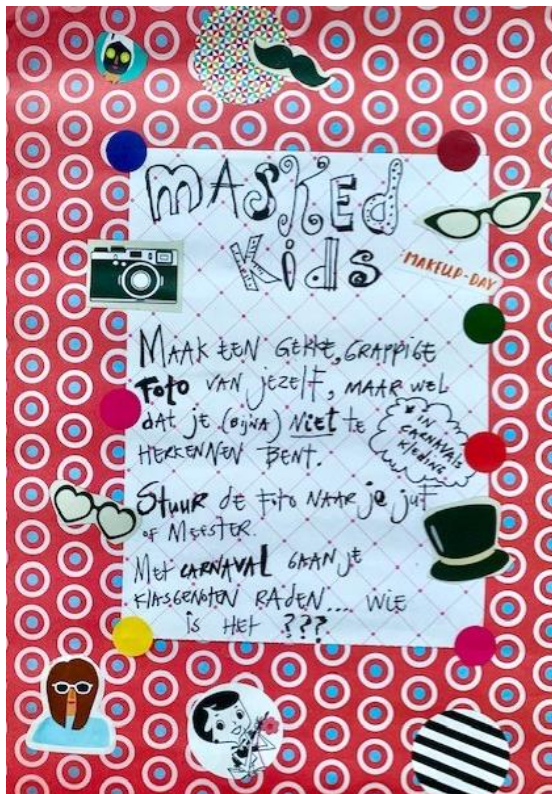 MASKED
KidS
MAKEUP-DAY
MAAK EEN GEKKE, GRAPPIGE
FOTO VAN JEZELF, MAAR WEL
dAT JE (BIJNA) NIET TE
HERKENNEN BENT.
* IN
CARNAVALS
KLEDING
STUUR dE FOTO NAAR je juf
OF MEESTER.
MET CARNAVAL GAAN JE
KLASGENOTEN RADEN... WIE
is HET ???